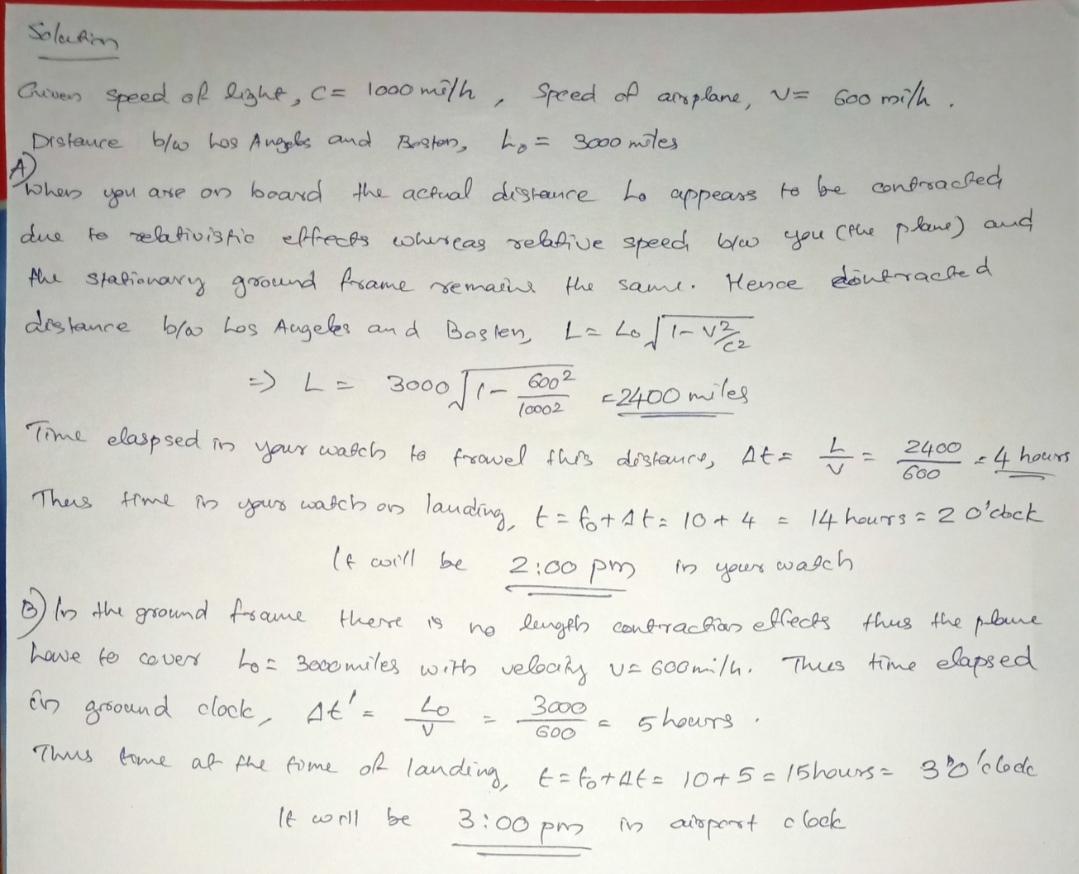 Solution
Given speed of light, C = 1000 mi/h, Speed of airplane, V = 600 mi/h.
Distance b/w Los Angeles and Boston, L₀ = 3000 miles
A) When you are on board the actual distance L₀ appears to be contracted
due to relativistic effects whereas relative speed b/w you (the plane) and
the stationary ground frame remains the same. Hence contracted
distance b/w Los Angeles and Boston, L = L₀ √(1 - V²/C²)
=> L = 3000 √(1 - 600²/1000²) = 2400 miles
Time elaspsed in your watch to travel this distance, Δt = L/V = 2400/600 = 4 hours
Thus time in your watch on landing, t = t₀ + Δt = 10 + 4 = 14 hours = 2 O'clock
It will be 2:00 pm in your watch
B) In the ground frame there is no length contraction effects thus the plane
have to cover L₀ = 3000 miles with velocity V = 600 mi/h. Thus time elapsed
in ground clock, Δt' = L₀/V = 3000/600 = 5 hours.
Thus time at the time of landing, t = t₀ + Δt = 10 + 5 = 15 hours = 3 O'clock
It will be 3:00 pm in airport clock